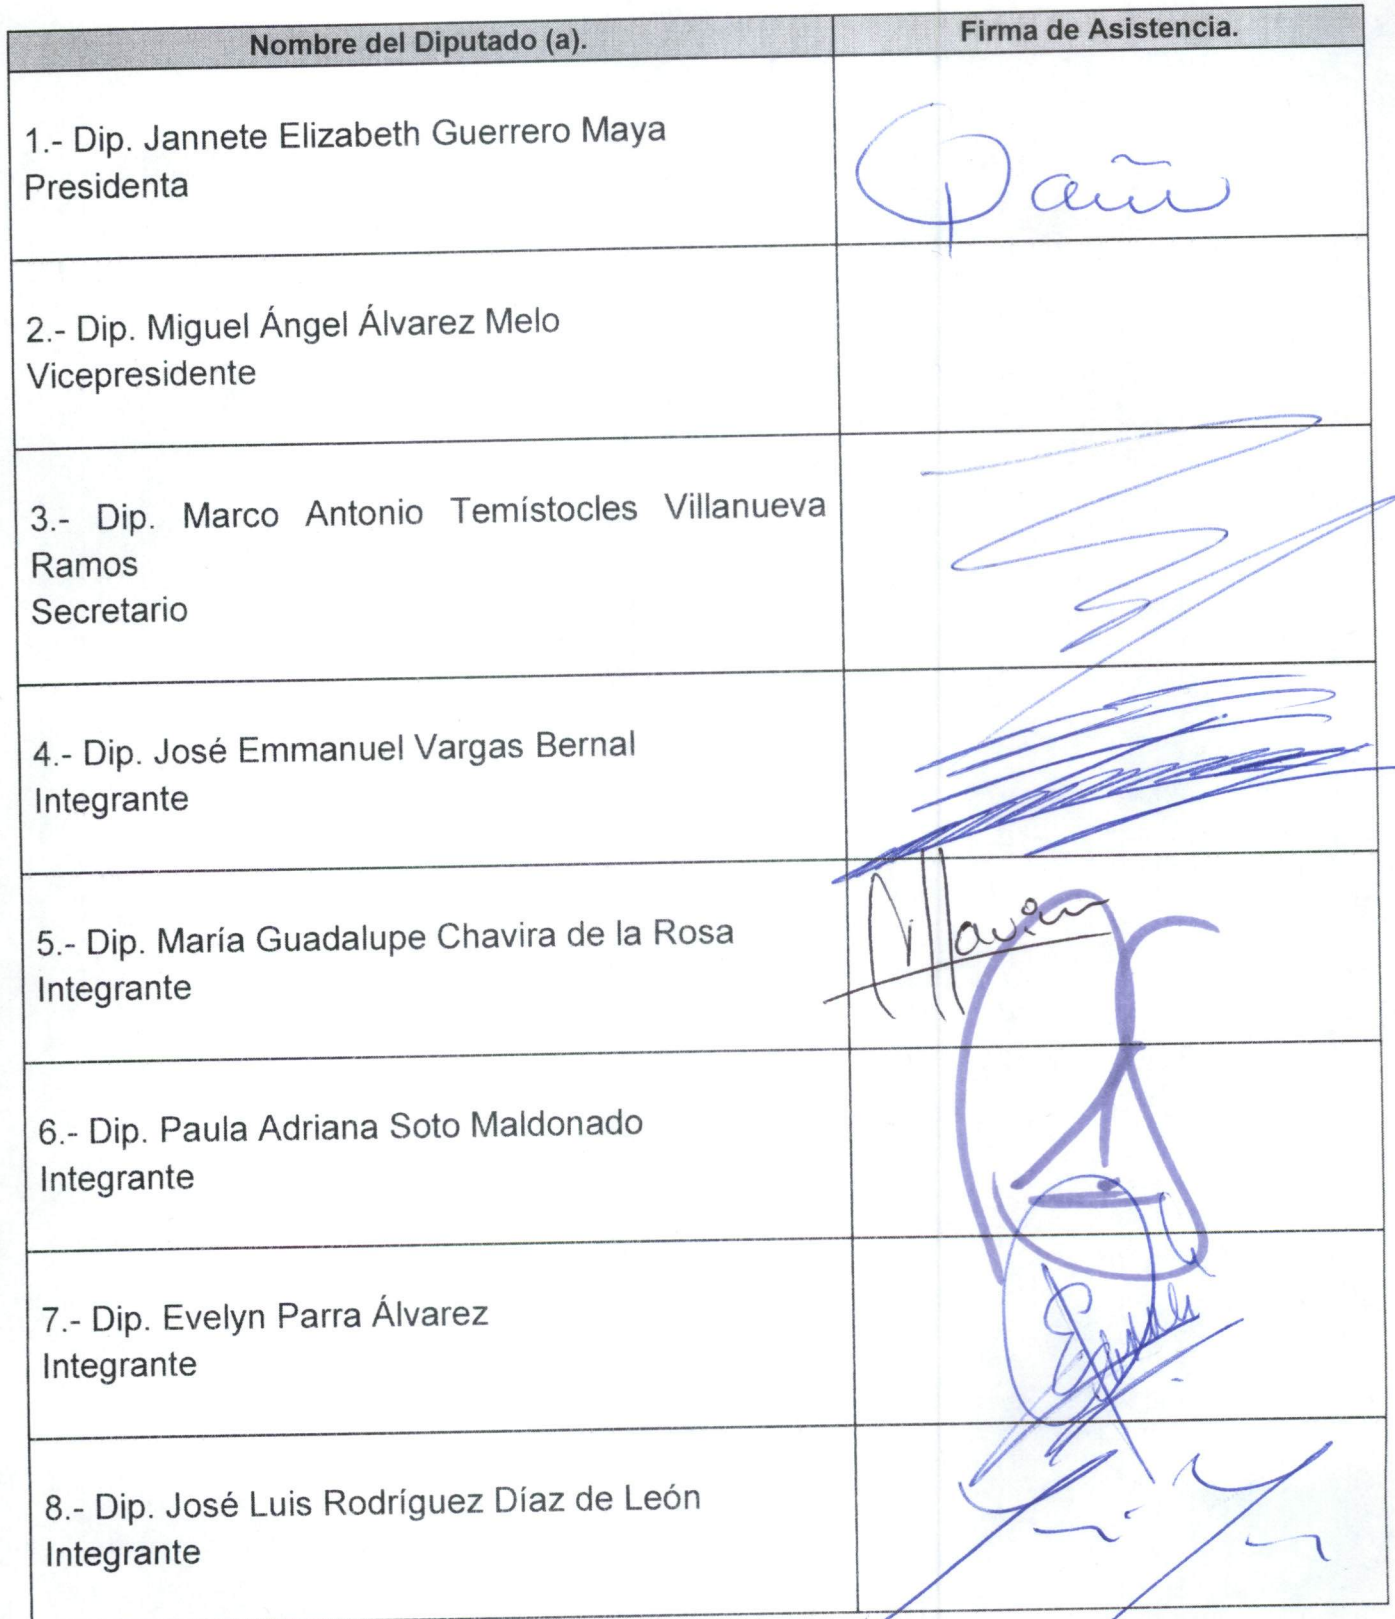 Nombre del Diputado (a). Firma de Asistencia.
1.- Dip. Jannete Elizabeth Guerrero Maya
Presidenta
2.- Dip. Miguel Ángel Álvarez Melo
Vicepresidente
3.- Dip. Marco Antonio Temístocles Villanueva
Ramos
Secretario
4.- Dip. José Emmanuel Vargas Bernal
Integrante
5.- Dip. María Guadalupe Chavira de la Rosa
Integrante
6.- Dip. Paula Adriana Soto Maldonado
Integrante
7.- Dip. Evelyn Parra Álvarez
Integrante
8.- Dip. José Luis Rodríguez Díaz de León
Integrante